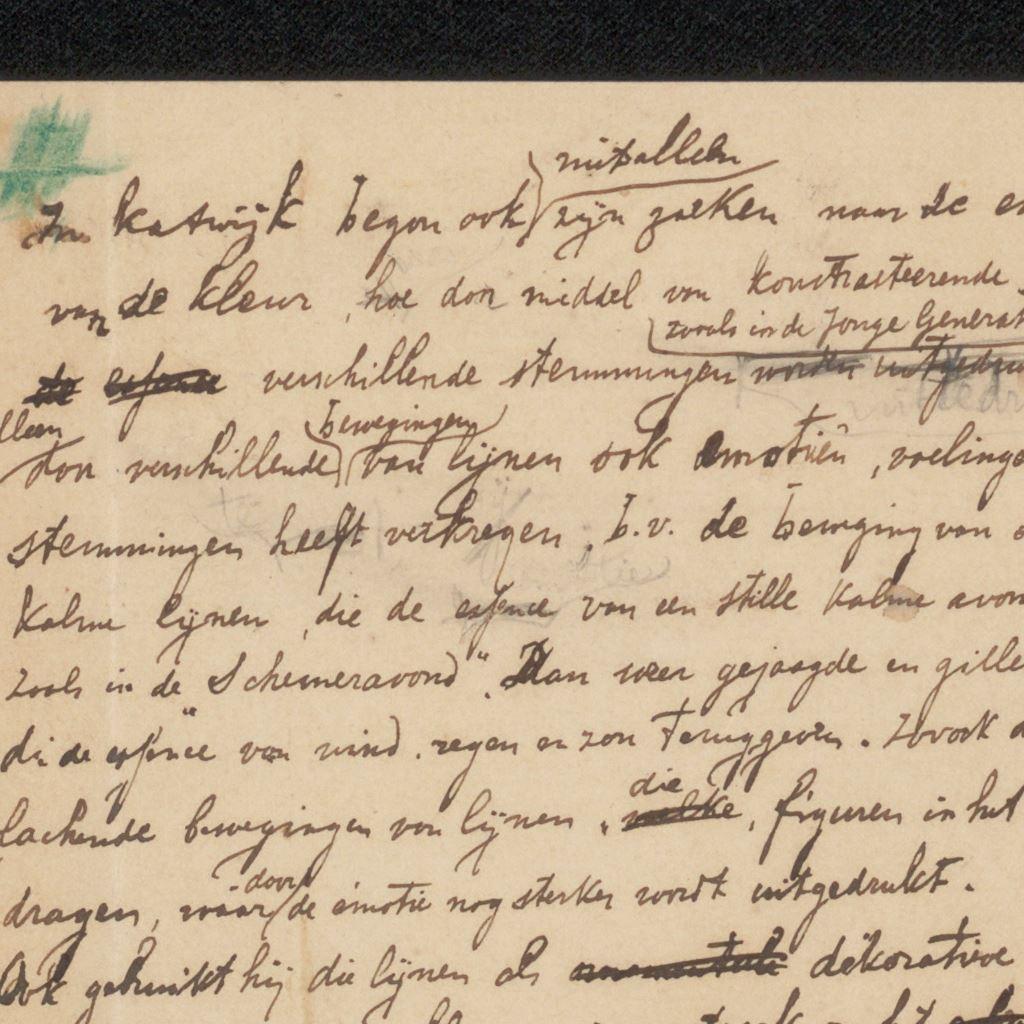 mitsallen
In Katwijk begon ook zijn zoeken naar de es
van de kleur, hoe dor middel van kontrasteerende
zooals in de Jonge Generat
de essence verschillende stemmingen worden uitgedru
lleen
bewegingen
dor verschillende van lijnen ook emotiën, voelinge
stemmingen heeft verkregen, b.v. de beweging van
kalme lijnen, die de essence van een stille kalme avon
zoals in de "Schemeravond". Dan weer gejaagde en gille
di de essence van wind, regen en zon teruggeven. Zoook
lachende bewegingen van lijnen, welke, figuren in het
die
dragen, waar de emotie nog sterker wordt uitgedrukt.
door
Ook gebruikt hij die lijnen als ornamentale dekoratieve